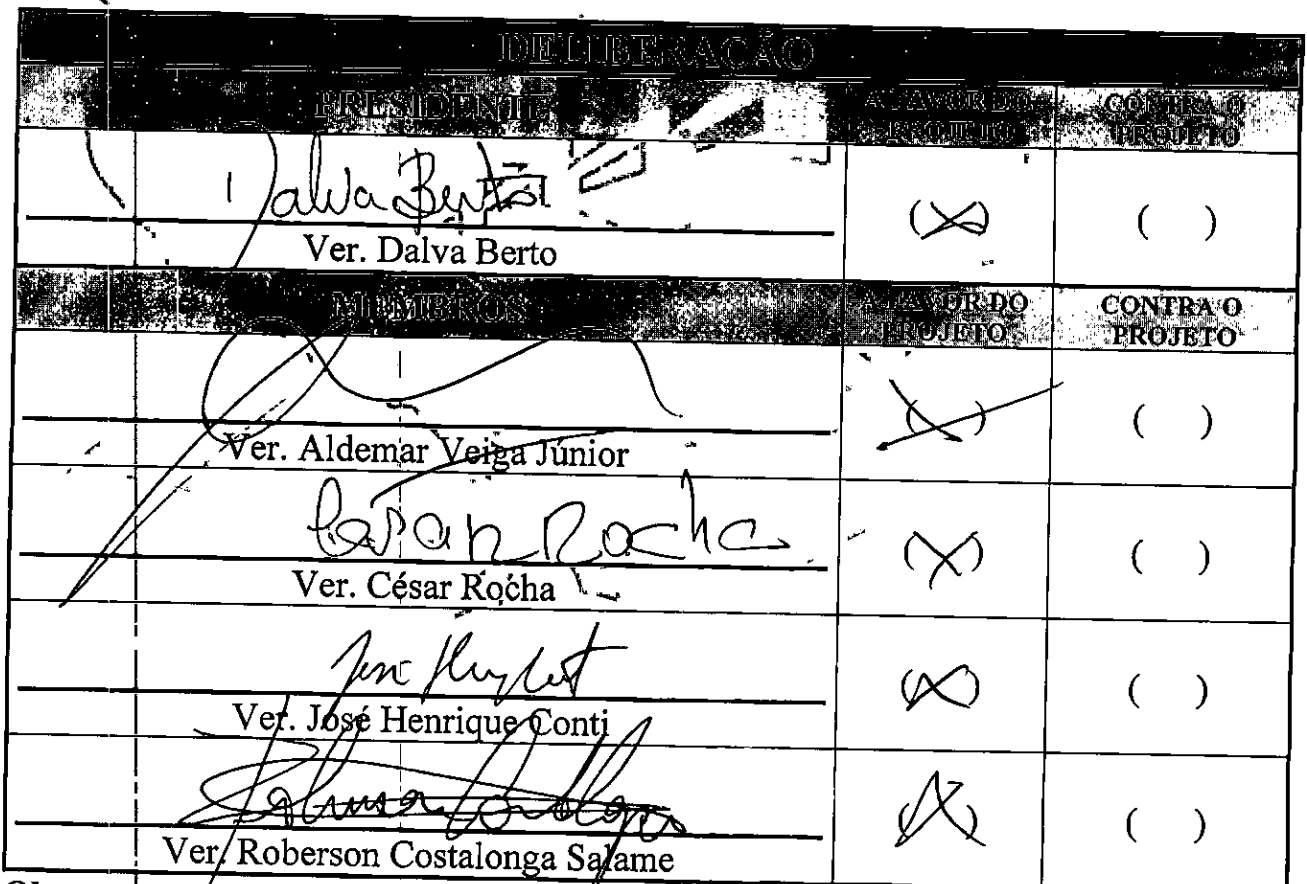 DELIBERAÇÃO
PRESIDENTE A FAVOR DO PROJETO CONTRA O PROJETO
Dalva Berto
(X) ( )
Ver. Dalva Berto
MEMBROS A FAVOR DO PROJETO CONTRA O PROJETO
(X) ( )
Ver. Aldemar Veiga Júnior
Cesar Rocha
(X) ( )
Ver. César Rocha
(X) ( )
Ver. José Henrique Conti
(X) ( )
Ver. Roberson Costalonga Salame